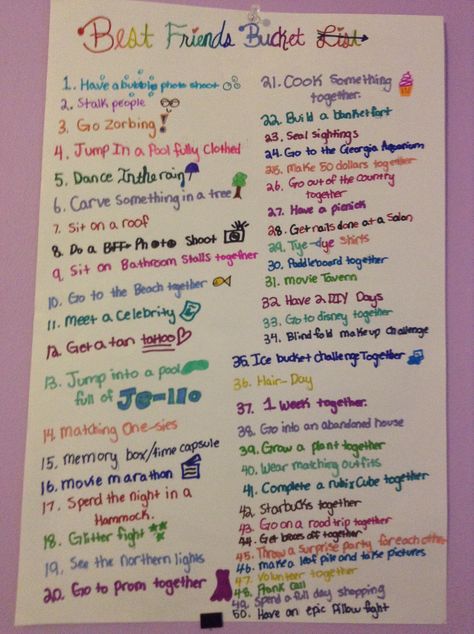 Best Friends Bucket List
1. Have a bubble photo shoot
2. Stalk people
3. Go Zorbing
4. Jump In a Pool fully Clothed
5. Dance In the rain
6. Carve Something in a tree
7. Sit on a roof
8. Do a BFF Photo Shoot
9. Sit on Bathroom Stalls together
10. Go to the Beach together
11. Meet a Celebrity
12. Get a tan tattoo
13. Jump into a pool
full of Je-llo
14. Matching One-sies
15. Memory box/time capsule
16. Movie marathon
17. Spend the night in a
Hammock.
18. Glitter fight
19. See the Northern lights
20. Go to Prom together
21. Cook Something
together.
22. Build a blanket fort
23. Seal sightings
24. Go to the Georgia Aquarium
25. Make 50 dollars together
26. Go out of the country
together
27. Have a picnick
28. Get nails done at a Salon
29. Tye-dye shirts
30. Paddleboard together
31. movie Tavern
32. Have 2 DIY Days
33. Go to disney together
34. Blind fold makeup challenge
35. Ice bucket challenge Together
36. Hair-Day
37. 1 Week together.
38. Go into an abandoned house
39. Grow a plant together
40. Wear matching outfits
41. Complete a rubix Cube together
42. Starbucks together
43. Go on a road trip together
44. Get braces off together
45. Throw a surprise party for each other
46. make a leaf pile and take pictures
47. Volunteer together
48. Prank Call
49. Spend a full day shopping
50. Have an epic Pillow fight